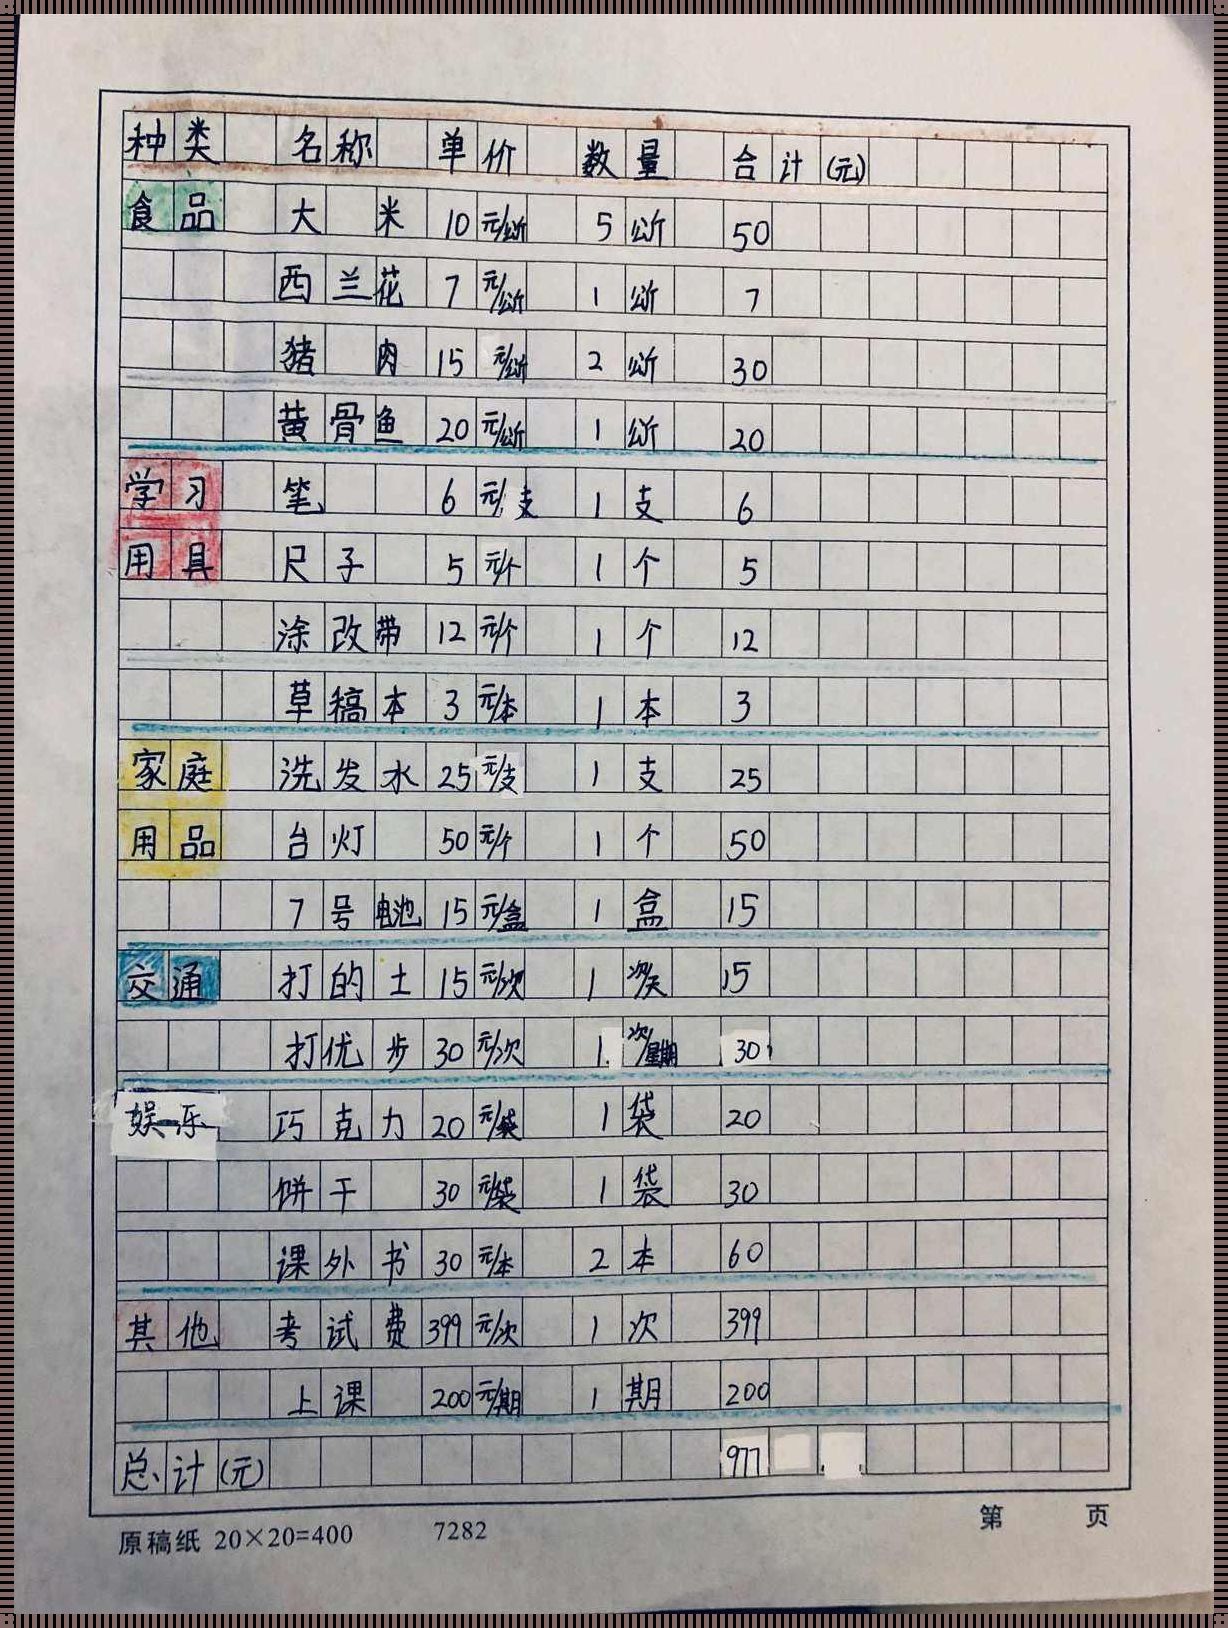 种类 名称 单价 数量 合计(元)
食品 大米 10 元/公斤 5 公斤 50
西兰花 7 元/公斤 1 公斤 7
猪肉 15 元/公斤 2 公斤 30
黄骨鱼 20 元/公斤 1 公斤 20
学习 笔 6 元/支 1 支 6
用具 尺子 5 元/个 1 个 5
涂改带 12 元/个 1 个 12
草稿本 3 元/本 1 本 3
家庭 洗发水 25 元/支 1 支 25
用品 台灯 50 元/个 1 个 50
7号电池 15 元/盒 1 盒 15
交通 打的士 15 元/次 1 次/天 15
打优步 30 元/次 1 次/星期 30
娱乐 巧克力 20 元/袋 1 袋 20
饼干 30 元/袋 1 袋 30
课外书 30 元/本 2 本 60
其他 考试费 399 元/次 1 次 399
上课 200 元/期 1 期 200
总计(元) 977
原稿纸 20×20=400 7282 第 页